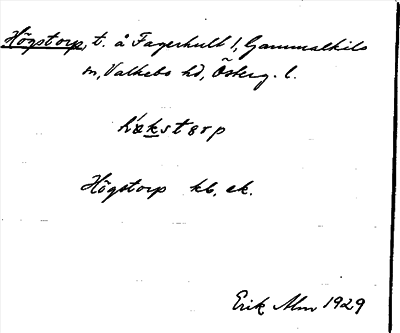 Högstorp, t. å Fagerhult 1, Gammalkils
sn, Valkebo hd, Österg. l.
hö̀kstørp
Högstorp kb, ek.
Erik Alm 1929